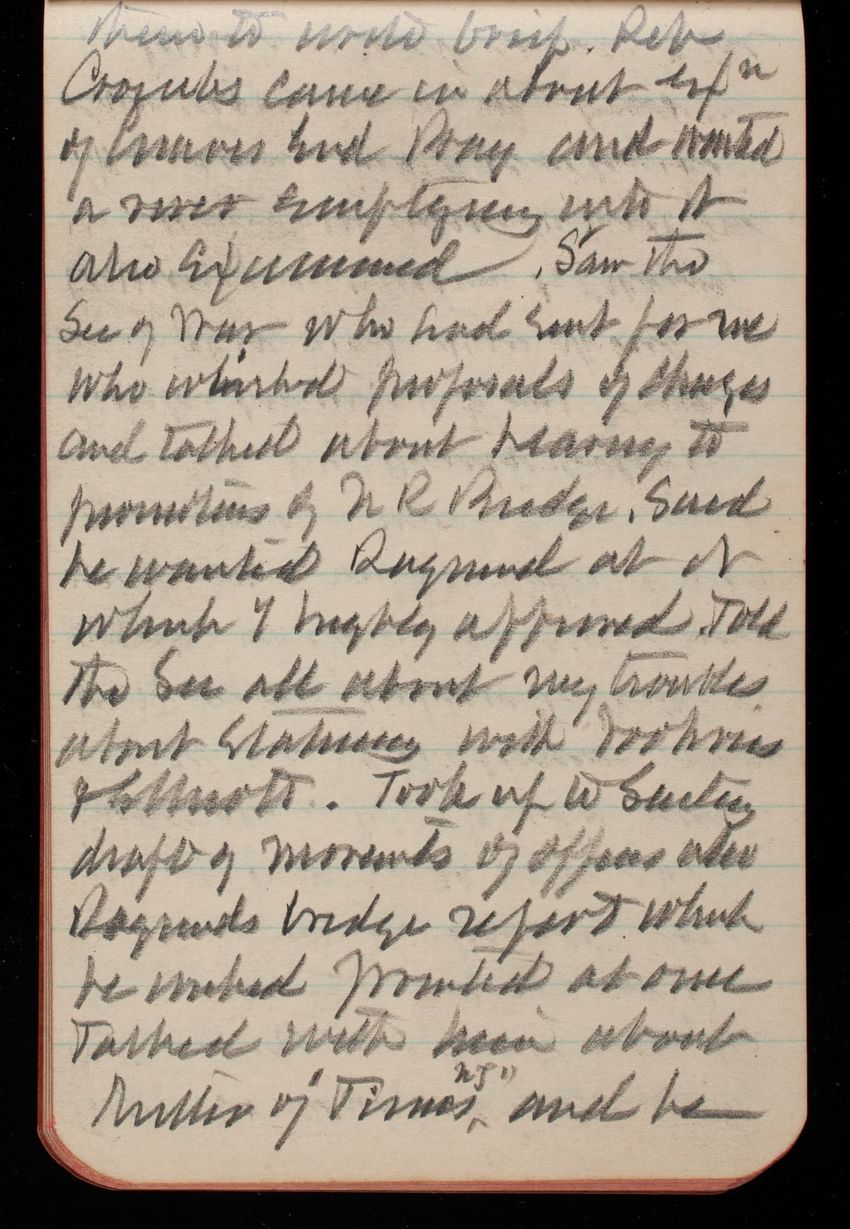 them to write brief. Rep
Coombs came in about exn
of Graves End Bay and wanted
a river emptying into it
also examined. Saw the
Sec of War who had sent for me
who wished proposals of changes
and talked about hearing to
promoters of N R Bridge. Said
he wanted Raymond at it
which I highly approved. Told
the Sec all about my troubles
about stationery with
& Elliott. Took up to Secty
draft of movements of officers also
Raymonds bridge report which
he wished printed at once
Talked with him about
of Times "N.Y." and he